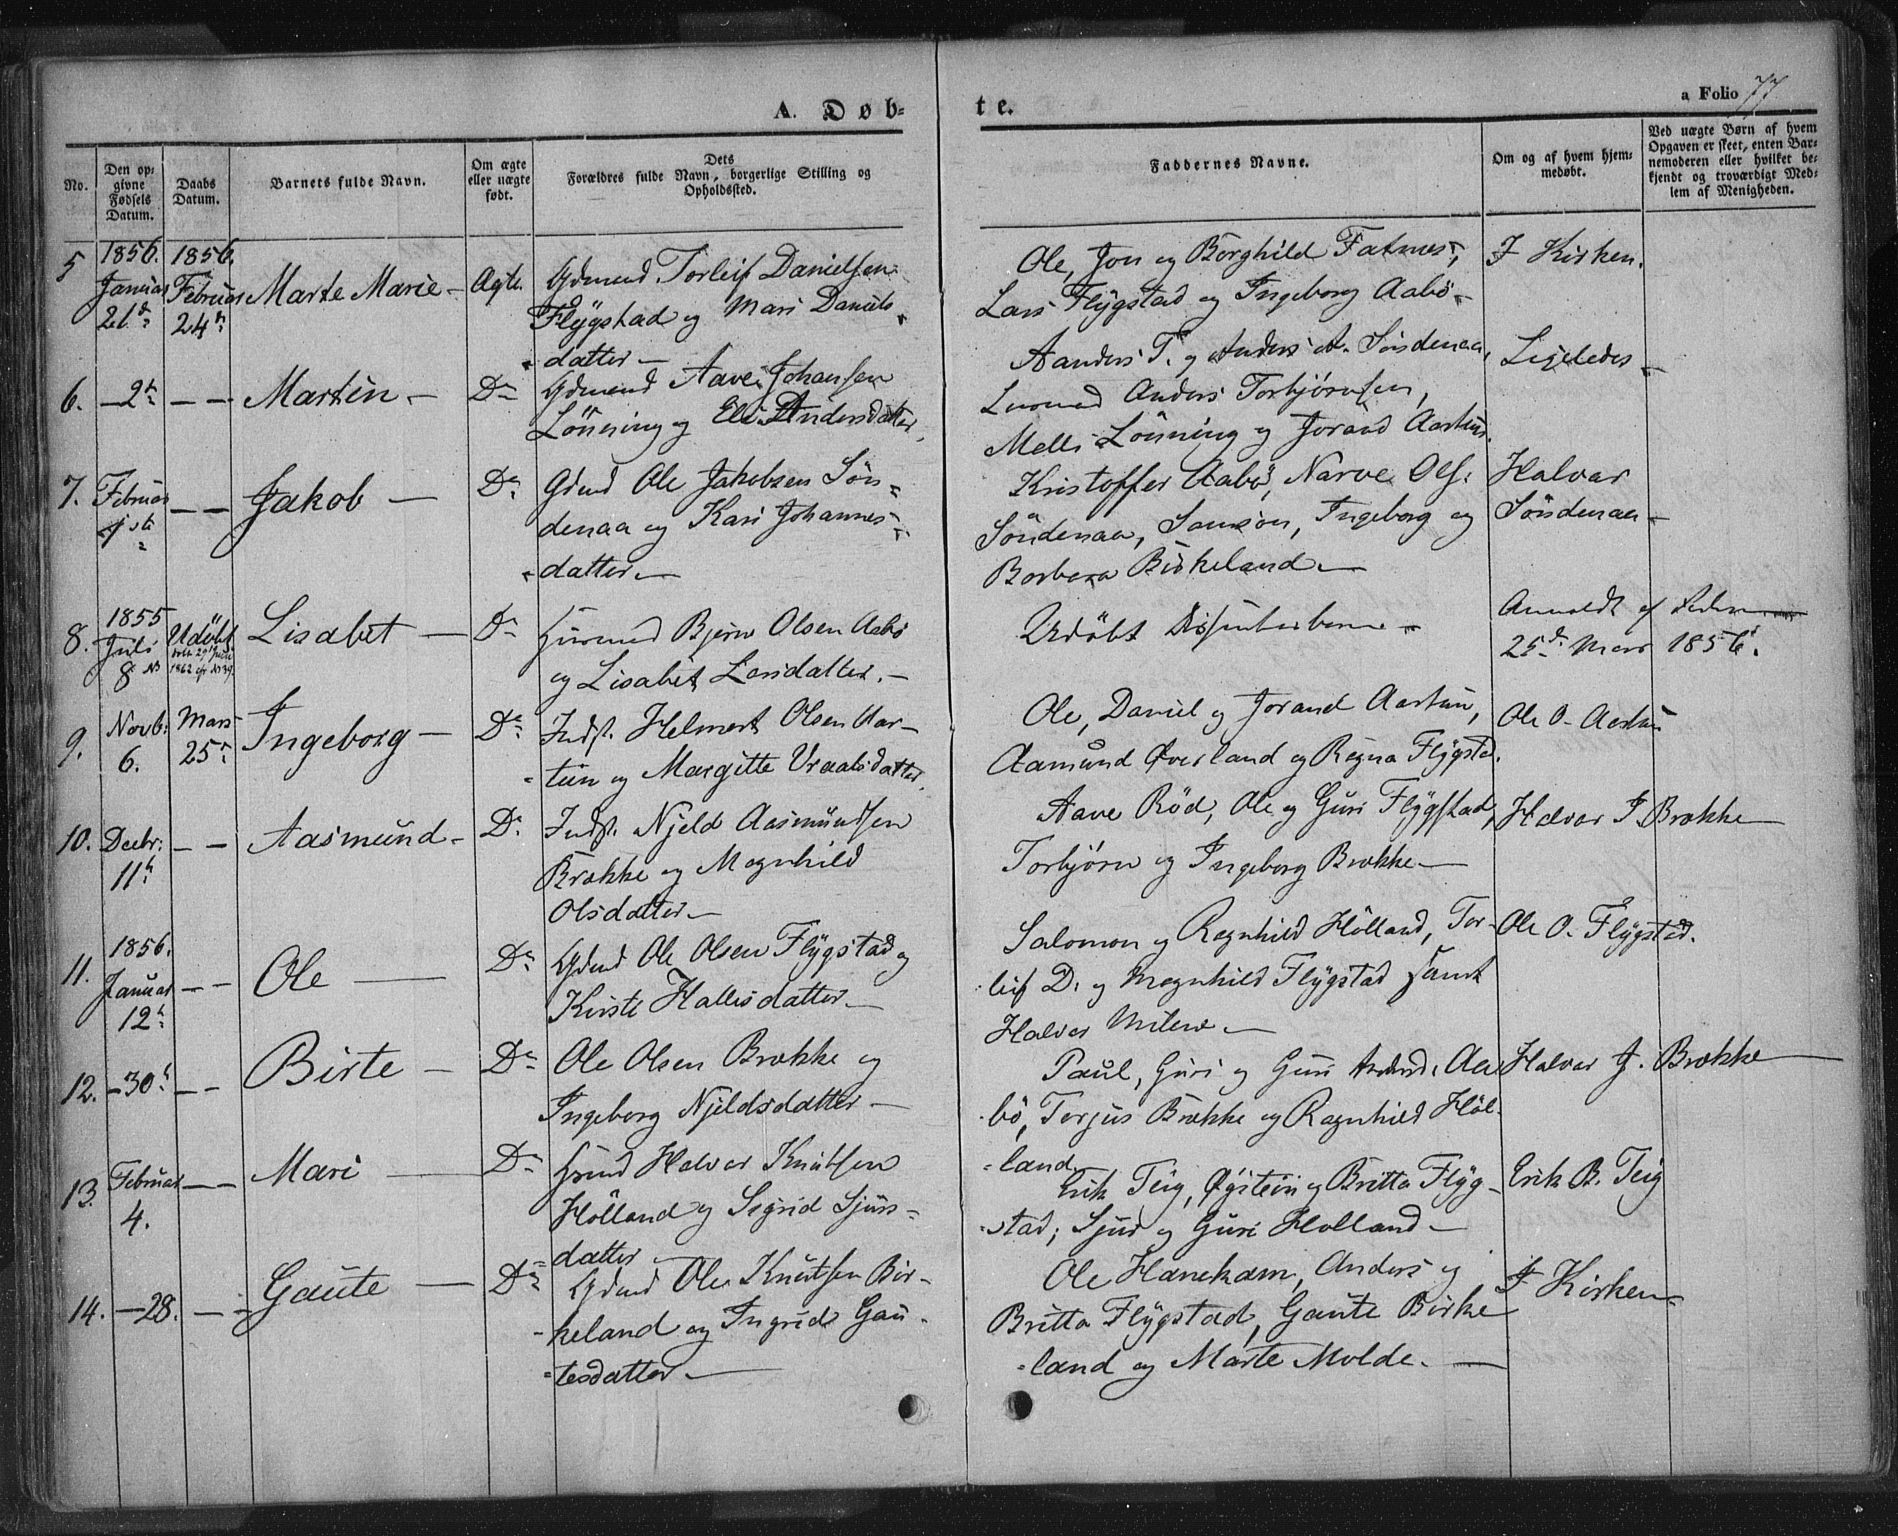 A. Døb=
te.
a Folio 77
No.
Den op=
givne
Fødsels
Datum.
Daabs
Datum.
Barnets fulde Navn.
Om ægte
eller uægte
født.
Dets
Forældres fulde Navn, borgerlige Stilling og
Opholdssted.
Faddernes Navne.
Om og af hvem hjem=
medøbt.
Ved uægte Børn af hvem
Opgaven er skeet, enten Bar=
nemoderen eller hvilket be=
kjendt og troværdigt Med=
lem af Menigheden.
5
1856.
Januar
21d
1856.
Februar
24n
Marte Marie –
Ægte.
Gdmend Torleif Danielsen
Flÿgstad og Mari Daniels
datter –
Ole, Jon og Borghild Fatnes,
Lars Flÿgstad og Ingeborg Aabö –
I Kirken.
6.
– 2n
– –
Martin –
Do
Gdmend Aave Johansen
Lönning og Eli Andersdatter,
Aanders T. og Anders A. Söndenaa,
Anders Torbjørnsen,
Lönning og Jorand Aartun.
Ligeledes –
7.
Februar
1ste
– –
Jakob –
Do
Gdmd Ole Jakobsen Sön=
denaa og Kari Johannes=
datter. –
Kristoffer Aabö, Narve Ols:
Söndenaa, Samson, Ingeborg og
Barbara Birkeland. –
Halvar
Söndenaa –
8.
1855
Juli
8de
Udöbt
1862
Lisabet –
Do
Huusmd Bjørn Olsen Aabö
og Lisabet Larsdatter. –
Udöbt Dissenterbarn –
Anmeldt af Faderen
25d Mars 1856.
9.
Novb:
6.
Mars
25n
Ingeborg –
Do
Indst. Helmert Olsen Aar=
tun og Margitte Vraalsdatter,
Ole, Daniel og Jorand Aartun,
Aamund Överland og Ragna Flÿgstad.
Ole O. Aartun
10.
Decbr:
11n
– –
Aasmund –
Do
Indst. Njeld Aasmundsen
Brække og Magnhild
Olsdatter –
Aave Röd, Ole og Guri Flÿgstad,
Torbjørn og Ingeborg Brække –
Halvar J Brække
11.
1856.
Januar
12n
– –
Ole –
Do
Gdmd Ole Olsen Flÿgstad og
Kirsti Hallisdatter –
Salomon og Ragnhild Hölland, Tor=
leif D. og Magnhild Flÿgstad samt
Halvor –
Ole O. Flÿgstad.
12.
– 30n
– –
Birte –
Do
Ole Olsen Brække og
Ingeborg Njeldsdatter –
Paul, Guri og Guri Aa
bö, Torjus Brække og Ragnhild Höl=
=land.
Halvar J. Brække
13.
Februar
4.
– –
Mari –
Do
Gdmd Halvar Knutsen
Hölland og Sigrid Sjurs=
datter –
Erik Teig, Øistein og Britta Flÿg=
=stad; Sjur og Guri Hölland –
Erik B. Teig
14.
– 28.
– –
Gaute –
Do
Gdmd Ole Knutsen Bir=
keland og Ingrid Gau=
=tesdatter. –
Ole Hanekam, Anders og
Britta Flÿgstad, Gaute Birke
=land og Marte Molde. –
I Kirken